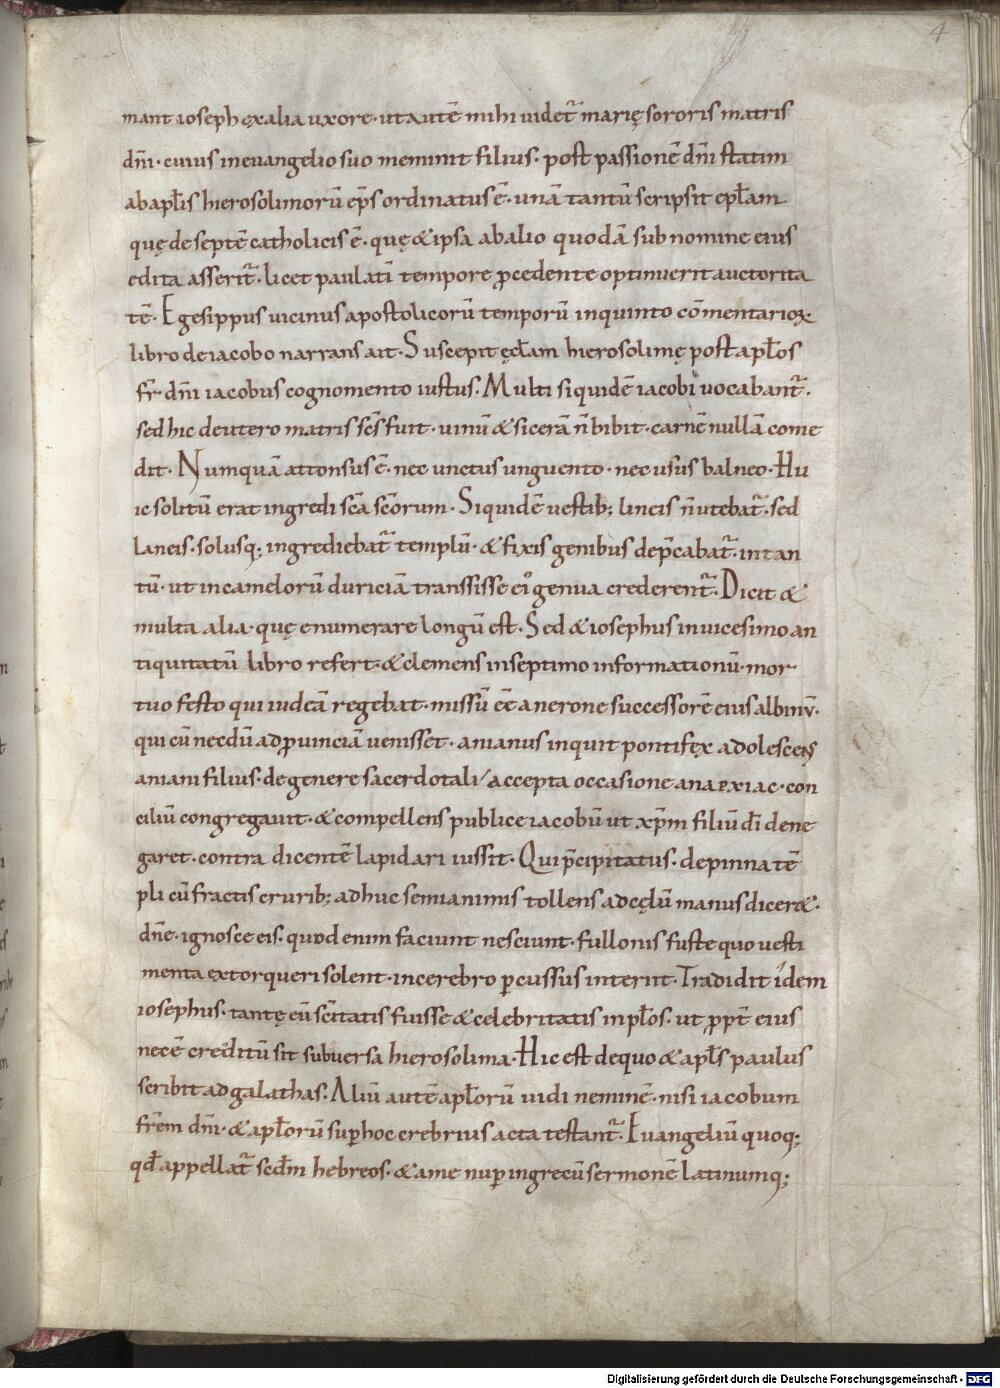 4
mant ioseph ex alia uxore · ut autē mihi uidet᷑ marię sororis matris
dn̄i · cuius in euangelio suo meminit filius · post passionē dn̄i statim
ab apl̄is hierosolimorū ep̄s ordinatus ē · unā tantū scripsit epl̄am
quę de septē catholicis ē · quę & ipsa ab alio quodā sub nomine eius
edita asserit᷑ · licet paulatī tempore p̄cedente optinuerit auctorita
tē · Egesippus uicinus apostolicorū temporū in quinto cōmentarioꝝ ·
libro de iacobo narrans ait · Suscepit ęcl̄am hierosolimę post apl̄os
fr̄ dn̄i iacobus cognomento iustus · Multi siquidē iacobi uocabant᷑ ·
sed hic deutero matris sc̄s fuit · uinū & sicerā n̄ bibit · carnē nullā come
dit · Numquā attonsus ē · nec unctus unguento · nec usus balneo · Hu
ic solitū erat ingredi sc̄a sc̄orum · Siquidē uestib; lineis n̄ utebat᷑ · sed
laneis · solusq; ingrediebat᷑ templū · & fixis genibus dep̄cabat᷑ · in tan
tū · ut in camelorū duriciā transsisse ei᷒ genua crederent᷑ · Dicit &
multa alia · quę enumerare longū est · Sed & iosephus in uicesimo an
tiquitatū libro refert · & clemens in septimo informationū · mor
tuo festo qui iudeā regebat · missū eē a nerone successorē eius albinū ·
qui cū necdū ad ꝓuinciā uenisset · ananus inquit pontifęx adolescens
aniani filius · de genere sacerdotali / accepta occasione anarxiac · con
ciliū congregauit · & compellens publice iacobū ut xp̄m filiū dī dene
garet · contra dicentē lapidari iussit · Qui p̄cipitatus · de pinna tē
pli cū fractis crurib; adhuc semianimis tollens ad cęlū manus dicer& ·
dn̄e · ignosce eis · quod enim faciunt nesciunt · fullonis fuste quo uesti
menta extorqueri solent · in cerebro ꝑcussus interiit · Tradidit idem
iosephus · tantę eū sc̄itatis fuisse & celebritatis in pl̄os · ut ꝓpt̄ eius
necē creditū sit subuersa hierosolima · Hic est de quo & apl̄s paulus
scribit ad galathas · Aliū autē apl̄orū uidi neminē · nisi iacobum
fr̄em dn̄i · & apl̄orū suꝑ hoc crebrius acta testant᷑ · Euangeliū quoq;
qđ appellat᷑ scđm hebreos · & a me nuꝑ in grecū sermonē latinumq;
Digitalisierung gefördert durch die Deutsche Forschungsgemeinschaft - DFG